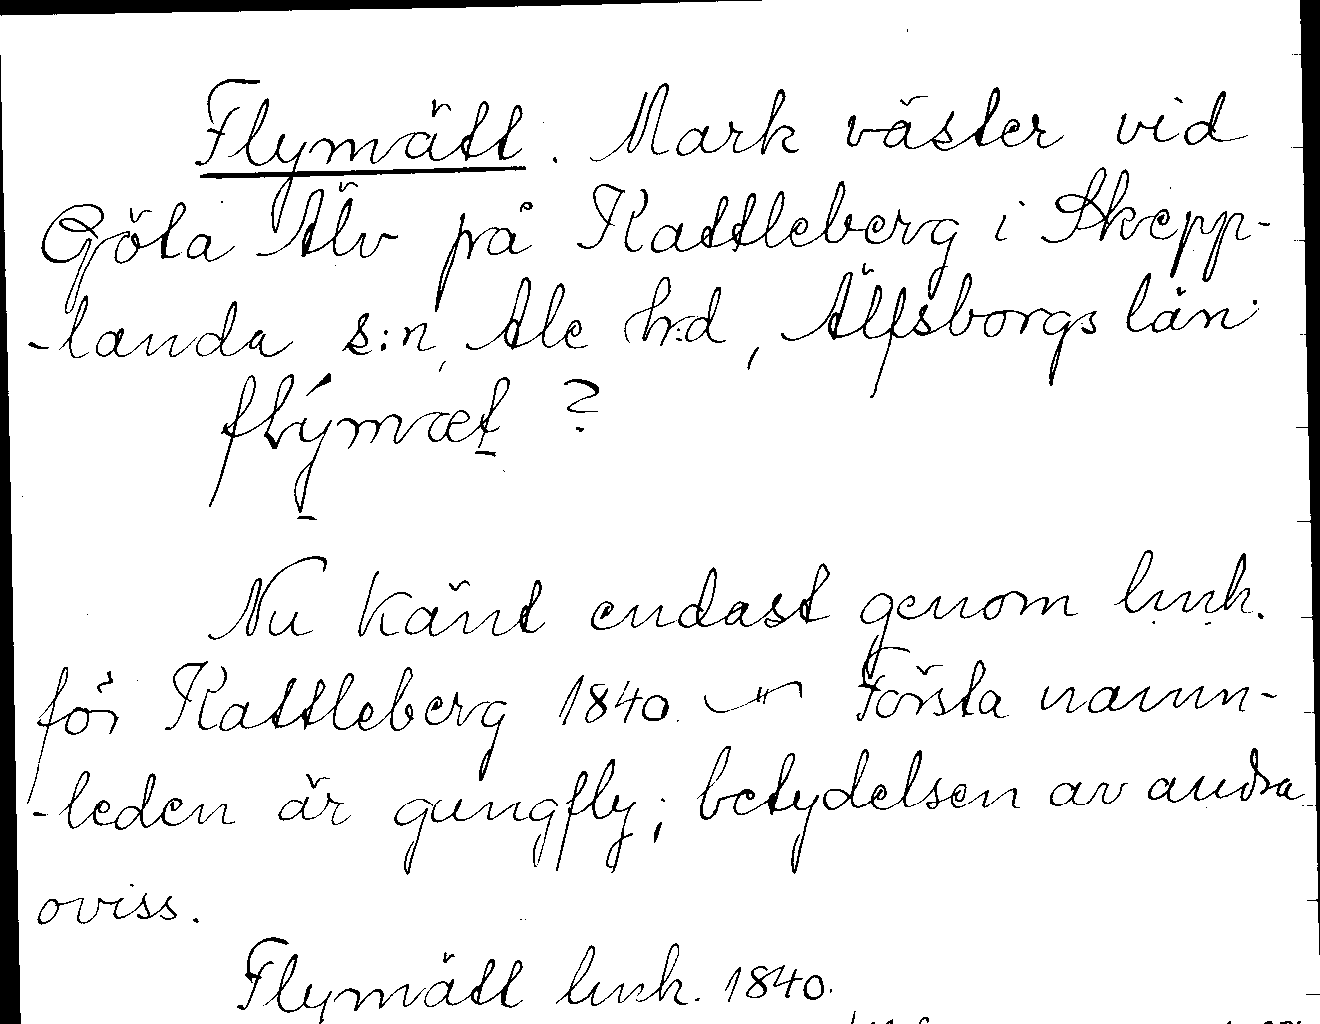 Flymätt. Mark väster vid
Göta Älv på Kattleberg i Skepp-
-landa s:n, Ale h:d, Älfsborgs län
flýmæt ?
Nu känt endast genom lmk.
för Kattleberg 1840. Första namn-
-leden är gungfly; betydelsen av andra
oviss.
Flymätt lmk. 1840.